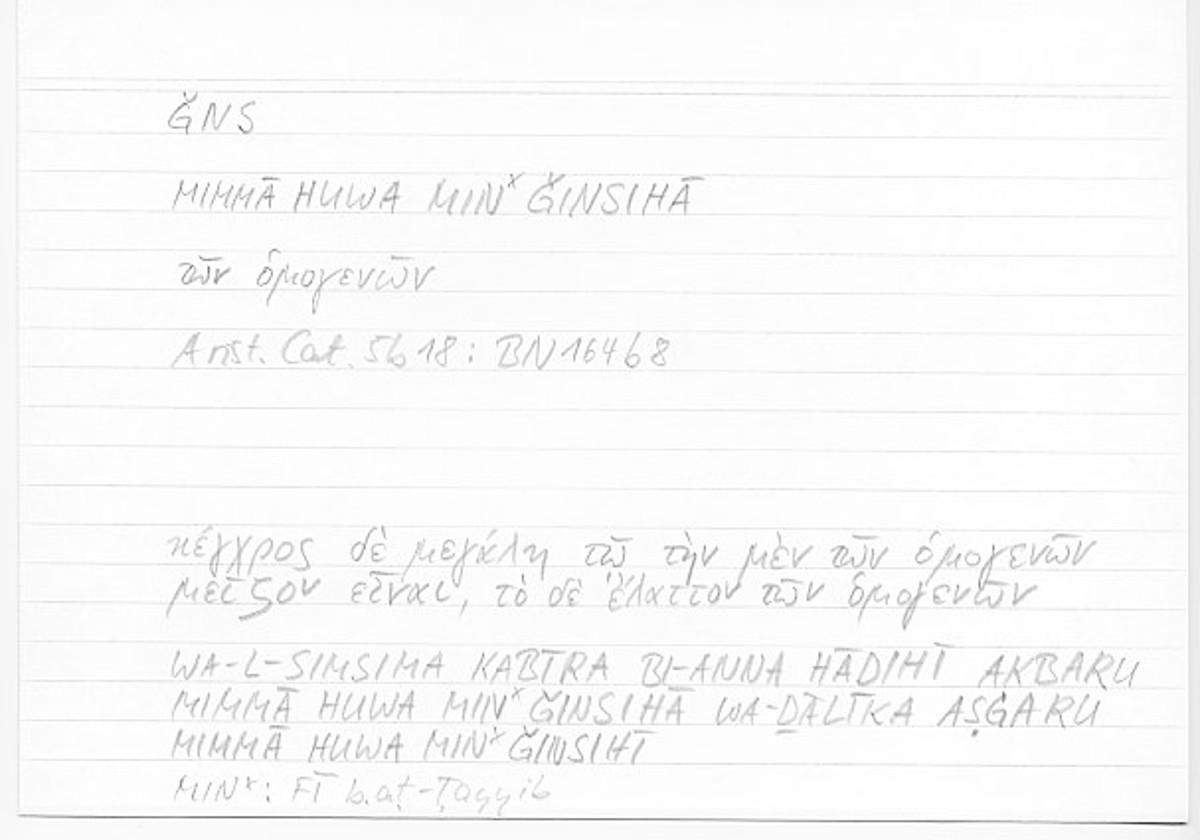 ǦNS
MIMMĀ HUWA MINˣ ǦINSIHĀ
τῶν ὁμογενῶν
Arist. Cat. 5b18: BN16468
κέγχρος δὲ μεγάλη τῷ τὴν μὲν τῶν ὁμογενῶν
μεῖζον εἶναι, τὸ δὲ ἔλαττον τῶν ὁμογενῶν
WA-L-SIMSIMA KABĪRA BI-ANNA HĀDIHĪ AKBARU
MIMMĀ HUWA MINˣ ǦINSIHĀ WA-ḎĀLĪKA AṢĠARU
MIMMĀ HUWA MINˣ ǦINSIHĪ
MINˣ: FĪ b.aṭ-Ṭayyib